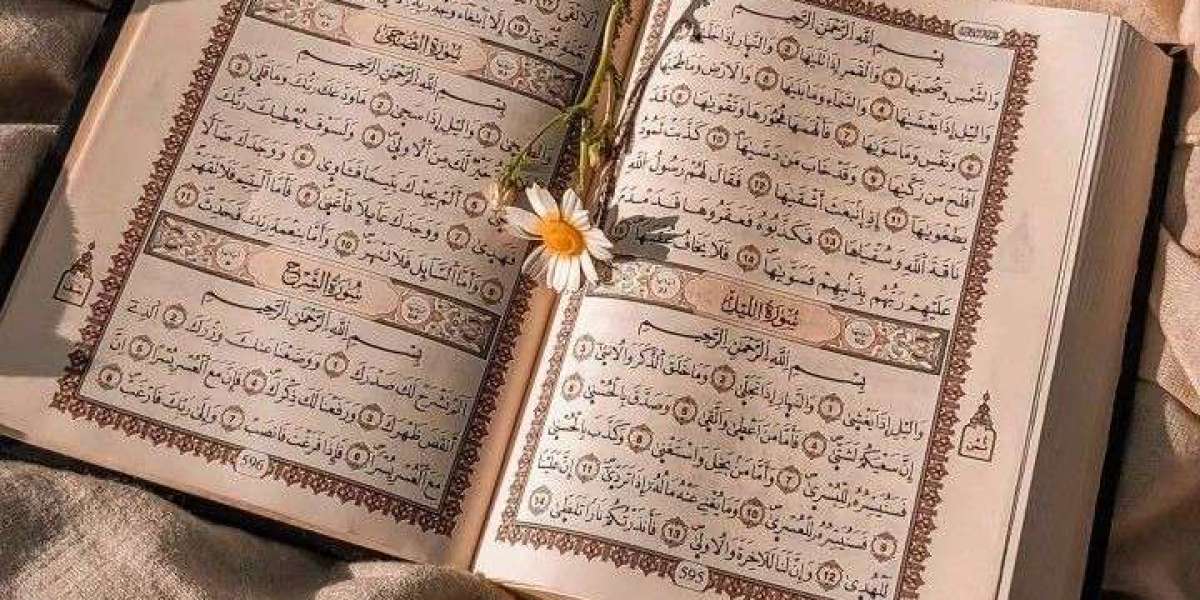 بِسْمِ اللَّهِ الرَّحْمَٰنِ الرَّحِيمِ
وَالشَّمْسِ وَضُحَىٰهَا ١ وَالْقَمَرِ إِذَا تَلَىٰهَا ٢ وَالنَّهَارِ إِذَا جَلَّىٰهَا ٣
وَالَّيْلِ إِذَا يَغْشَىٰهَا ٤ وَالسَّمَاءِ وَمَا بَنَىٰهَا ٥ وَالْأَرْضِ وَمَا طَحَىٰهَا
٦ وَنَفْسٍ وَمَا سَوَّىٰهَا ٧ فَأَلْهَمَهَا فُجُورَهَا وَتَقْوَىٰهَا ٨ قَدْ
أَفْلَحَ مَن زَكَّىٰهَا ٩ وَقَدْ خَابَ مَن دَسَّىٰهَا ١٠ كَذَّبَتْ ثَمُودُ
بِطَغْوَىٰهَا ١١ إِذِ انبَعَثَ أَشْقَىٰهَا ١٢ فَقَالَ لَهُمْ رَسُولُ اللَّهِ
نَاقَةَ اللَّهِ وَسُقْيَٰهَا ١٣ فَكَذَّبُوهُ فَعَقَرُوهَا فَدَمْدَمَ
عَلَيْهِمْ رَبُّهُم بِذَنبِهِمْ فَسَوَّىٰهَا ١٤ وَلَا يَخَافُ ١٥
سُورَةُ اللَّيْلِ
بِسْمِ اللَّهِ الرَّحْمَٰنِ الرَّحِيمِ
وَالَّيْلِ إِذَا يَغْشَىٰ ١ وَالنَّهَارِ إِذَا تَجَلَّىٰ ٢ وَمَا خَلَقَ الذَّكَرَ وَالْأُنثَىٰ ٣
إِنَّ سَعْيَكُمْ لَشَتَّىٰ ٤ فَأَمَّا مَنْ أَعْطَىٰ وَاتَّقَىٰ ٥ وَصَدَّقَ بِالْحُسْنَىٰ ٦
فَسَنُيَسِّرُهُ لِلْيُسْرَىٰ ٧ وَأَمَّا مَن بَخِلَ وَاسْتَغْنَىٰ ٨ وَكَذَّبَ بِالْحُسْنَىٰ
٩ فَسَنُيَسِّرُهُ لِلْعُسْرَىٰ ١٠ وَمَا يُغْنِي عَنْهُ مَالُهُ إِذَا تَرَدَّىٰ ١١ إِنَّ عَلَيْنَا
لَلْهُدَىٰ ١٢ وَإِنَّ لَنَا لَلْآخِرَةَ وَالْأُولَىٰ ١٣ فَأَنذَرْتُكُمْ نَارًا تَلَظَّىٰ ١٤
595
تُجْزَىٰ ١٩ إِلَّا ابْتِغَاءَ وَجْهِ رَبِّهِ
سُورَةُ الضُّحَىٰ
بِسْمِ اللَّهِ الرَّحْمَٰنِ الرَّحِيمِ
وَالضُّحَىٰ ١ وَالَّيْلِ إِذَا سَجَىٰ ٢ مَا وَدَّعَكَ رَبُّكَ وَمَا قَلَىٰ ٣
خَيْرٌ لَّكَ مِنَ الْأُولَىٰ ٤ وَلَسَوْفَ يُعْطِيكَ رَبُّكَ
٥ أَلَمْ يَجِدْكَ يَتِيمًا فَآوَىٰ ٦ وَوَجَدَكَ ضَالًّا
فَهَدَىٰ ٧ وَوَجَدَكَ عَائِلًا فَأَغْنَىٰ ٨ فَأَمَّا الْيَتِيمَ فَلَا تَقْهَرْ
٩ وَأَمَّا السَّائِلَ فَلَا تَنْهَرْ ١٠ وَأَمَّا بِنِعْمَةِ رَبِّكَ فَحَدِّثْ ١١
سُورَةُ الشَّرْحِ
بِسْمِ اللَّهِ الرَّحْمَٰنِ الرَّحِيمِ
أَلَمْ نَشْرَحْ لَكَ صَدْرَكَ ١ وَوَضَعْنَا عَنكَ وِزْرَكَ ٢ الَّذِي
أَنقَضَ ظَهْرَكَ ٣ وَرَفَعْنَا لَكَ ذِكْرَكَ ٤ فَإِنَّ مَعَ الْعُسْرِ يُسْرًا ٥ إِنَّ
مَعَ الْعُسْرِ يُسْرًا ٦ فَإِذَا فَرَغْتَ فَانصَبْ ٧ وَإِلَىٰ رَبِّكَ فَارْغَب ٨
596